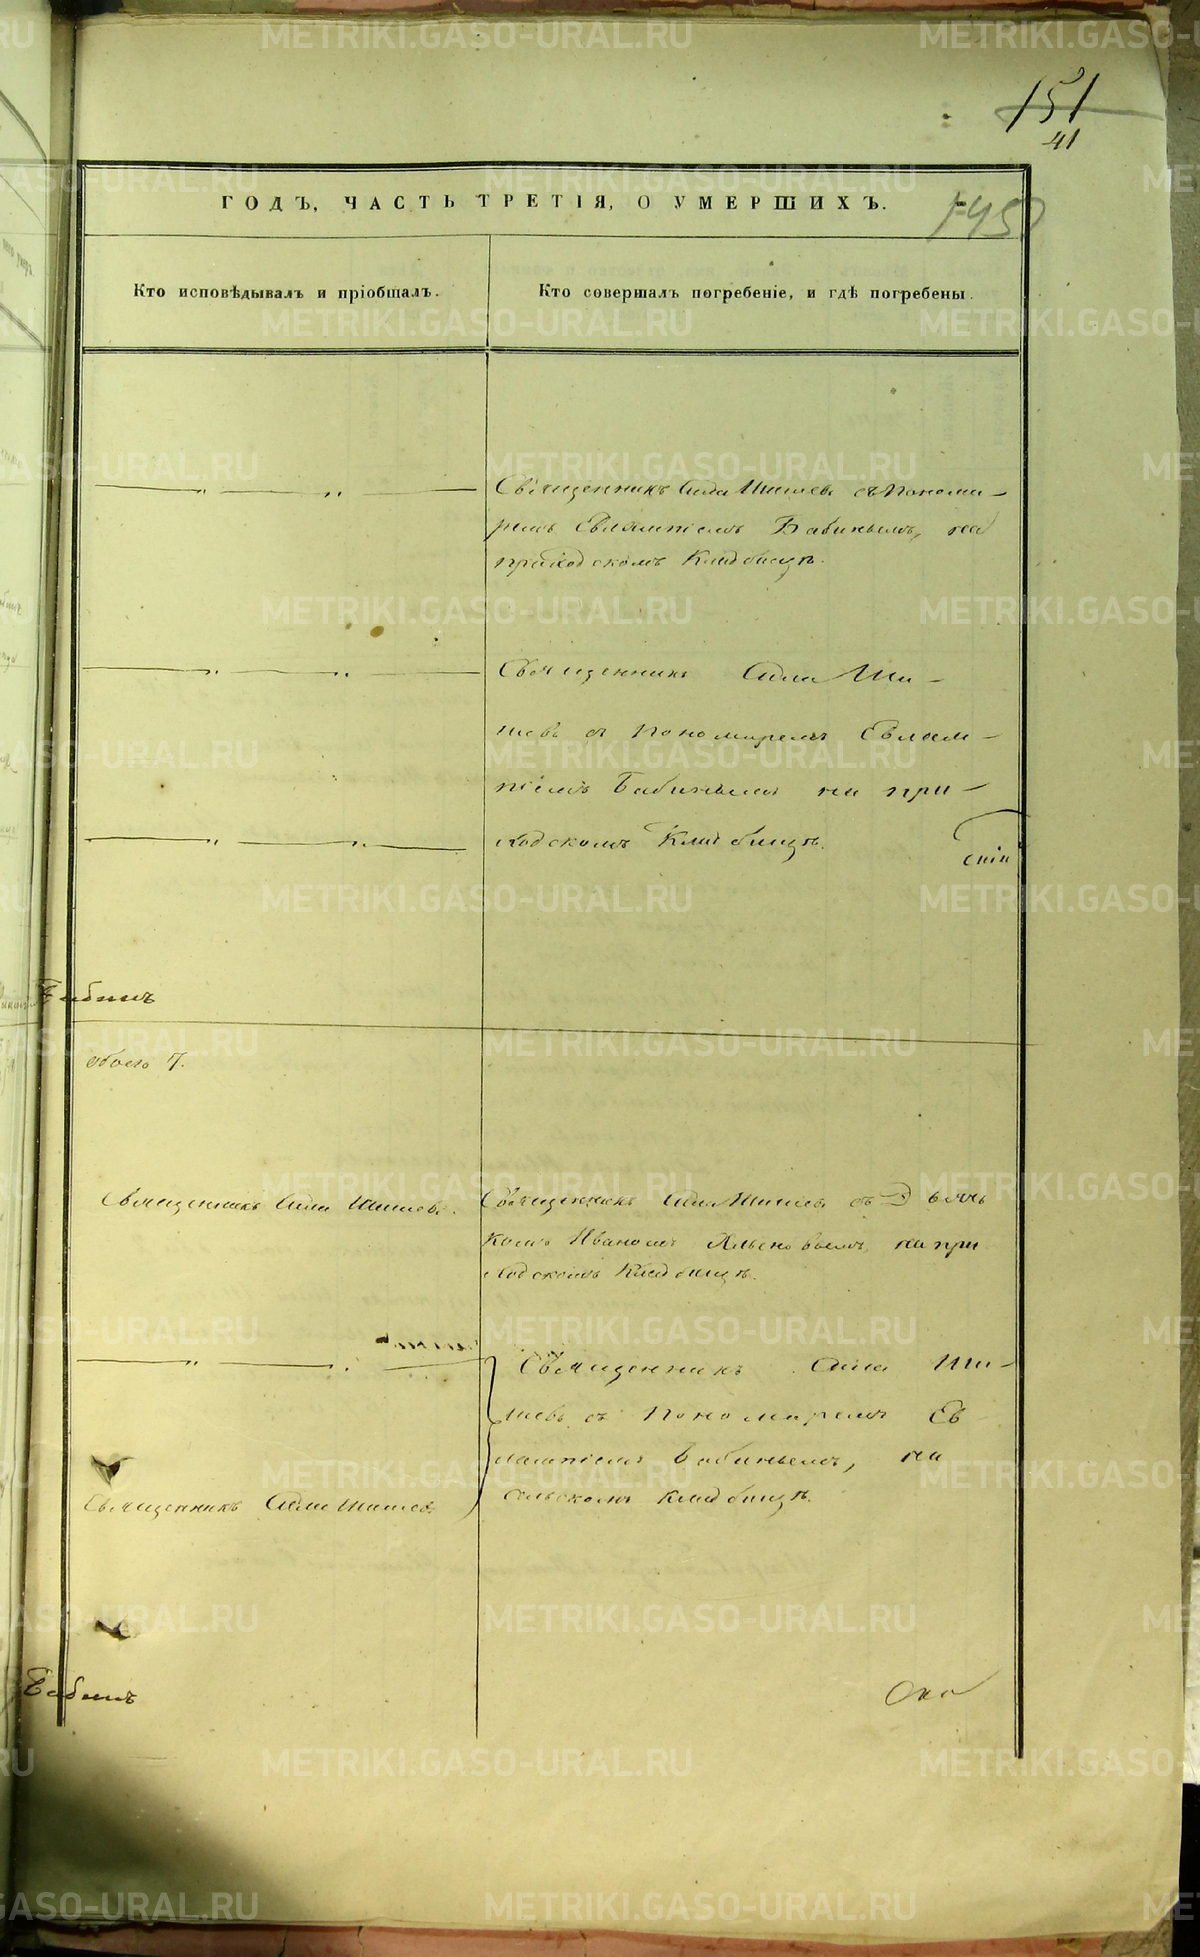 151
41
ГОДЪ, ЧАСТЬ ТРЕТІЯ, О УМЕРШИХЪ.
Кто исповѣдывалъ и пріобщалъ.
Кто совершалъ погребеніе, и гдѣ погребены.
Священникъ Сила Шишевъ съ Понома-
ремъ Евлампіемъ Бабинымъ, на
приходскомъ Кладбищѣ.
Священникъ Сила Ши-
шевъ съ Пономаремъ Евлам-
піемъ Бабинымъ на при-
ходскомъ Кладбищѣ.
Бабинъ
обоего 7.
Священникъ Сила Шишевъ.
Священникъ Сила Шишевъ съ Дьяч
комъ Иваномъ на при
ходскомъ Кладбищѣ.
Священникъ Сила Ши-
шевъ съ Пономаремъ Ев
лампіемъ Бабинымъ, на
сельскомъ кладбищѣ.
Священникъ Сила Шишевъ.
Бабинъ
METRIKI.GASO-URAL.RU